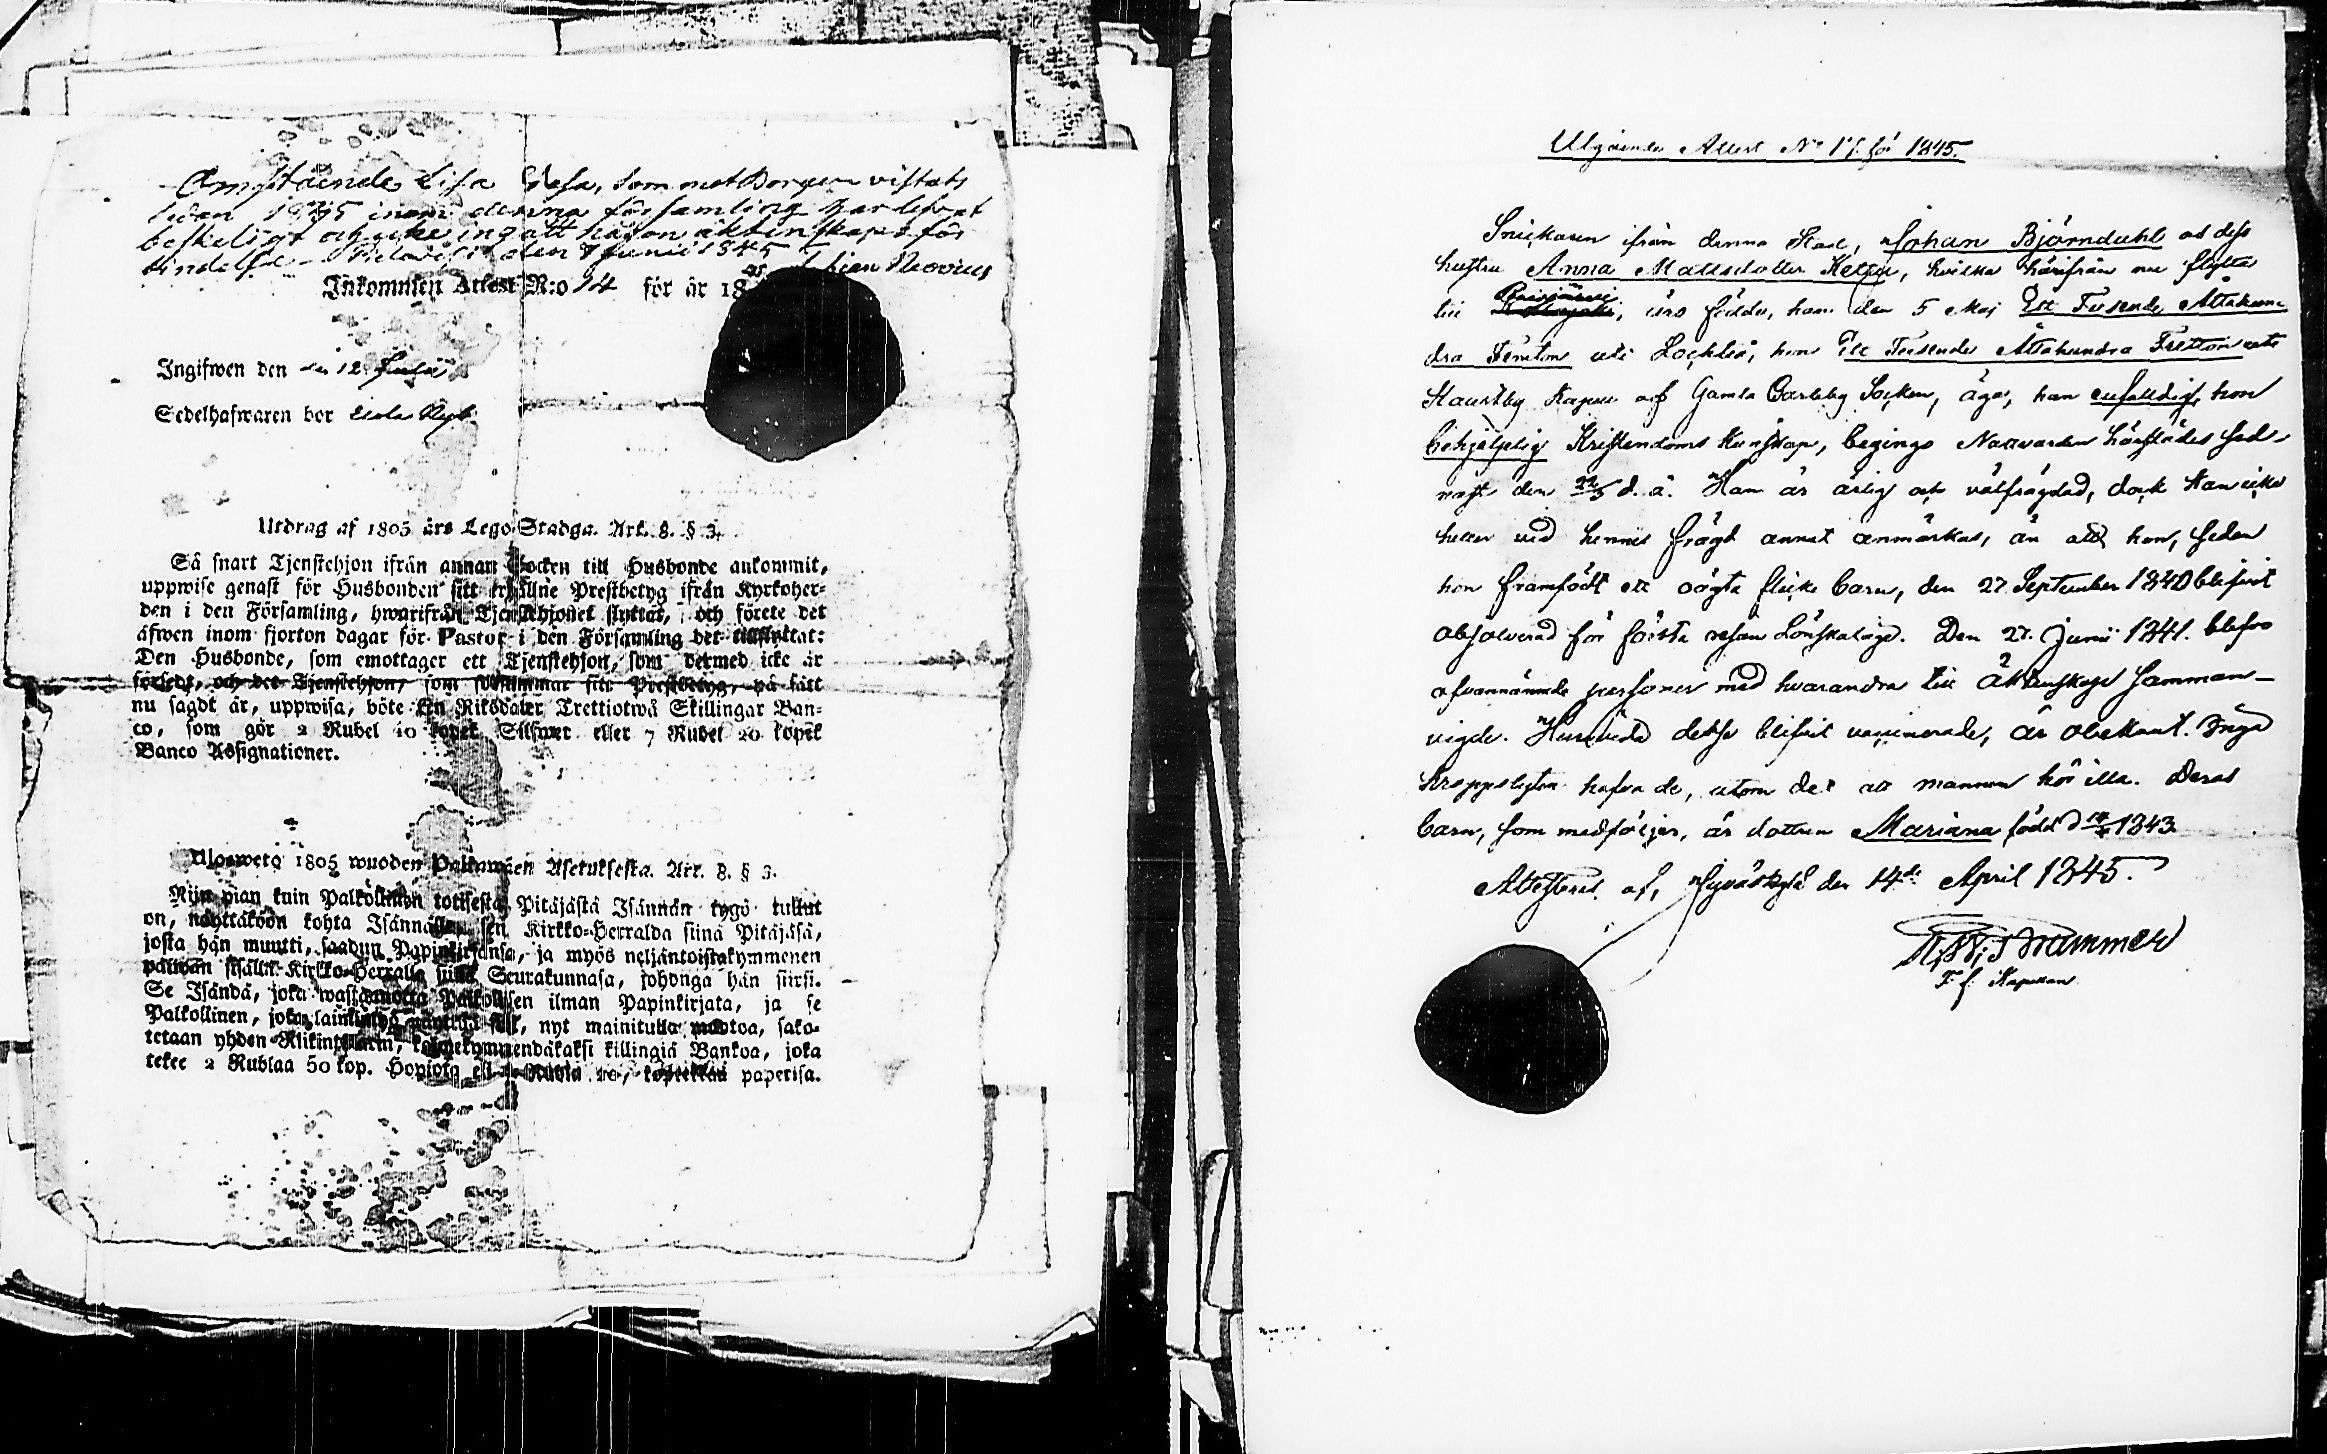 Omstående Lisa, som mot Borgen vistats
sedan 1835 inom denna församling har lefvat
beskeligt och icke ingått någon äktenskaps för
bindelse den 7 Junii 1845
Inkommen Attest N:o 14 för år 18
Ingifwen den 12 Julii
Sedelhafwaren bor
Utdrag af 1805 års Lego-Stadga. Art. 8. § 3.
Så snart Tjenstehjon ifrån annan Socken till Husbonde ankommit,
uppwise genast för Husbonden sitt erhållne Prestbetyg ifrån Kyrkoher-
den i den Församling, hwarifrån Tjenstehjonet flyttat, och förete det
äfwen inom fjorton dagar för Pastor i den Församling det tillflyttat:
Den Husbonde, som emottager ett Tjenstehjon, som dermed icke är
försedt, och det Tjenstehjon, som försummar sitt Prestbetyg, på sätt
nu sagdt är, uppwisa, böte En Riksdaler Trettiotwå Skillingar Ban-
co, som gör 2 Rubel 10 kopek Silfwer eller 7 Rubel 20 kopek
Banco Assignationer.
Ulosweto 1805 wuoden Palkawäen Asetuksesta. Art. 8. § 3.
Niin pian kuin Palkollinen toisesta Pitäjästä Isännän tygö tullut
on, näyttäköön kohta Isännällen sen Kirkko-Herralda siinä Pitäjäsä,
josta hän muutti, saadun Papinkirjansa, ja myös neljäntoistakymmenen
päiwän sisällä Kirkko-Herralla siinä Seurakunnasa, johonga hän siirsi.
Se Isändä, joka wastanotta Palkollisen ilman Papinkirjata, ja se
Palkollinen, joka laiminlyö näyttää sitä, nyt mainitulla muotoa, sako-
tetaan yhden Riikintalarin, kolmekymmendäkaksi killingiä Bankoa, joka
tekee 2 Rublaa 50 kop. Hopiota eli Rubla 20, kopeekkaa paperisa.
Utgående Attest No 17. för 1845.
Snickaren ifrån denna Stad, Johan Björndahl och dess
hustru Anna Mattsdotter, hvilka härifrån nu flytta
till, äro födde, han den 5 Maj Ett Tusende Åttahun-
dra Femton uti Lochteå, hon Ett Tusende Åttahundra Tretton uti
Kaustby Kapell af Gamla Carleby Socken, äga, han enfaldig, hon
behjelpelig Kristendoms kunskap, begingo Nattvarden härstädes sed-
nast den d. å. Han är ärlig och välfrägdad, dock kan icke
heller vid hennes frägd annat anmärkas, än att hon, sedan
hon framfödt ett oägta flicke barn, den 27 September 1840 blifvit
absolverad för första resan Lönskaläge. Den 27. Junii 1841. blefvo
ofvannämnde personer med hvarandra till äktenskap samman-
vigde. Huruvida desse blifvit vaccinerade, är obekant. Inga
kroppslyten hafva de, utom det att mannen hör illa. Deras
barn, som medföljer, är dottren Mariana född d 1843.
Attesteras af, Jyväskylä den 14de April 1845.
T.f. Kapellan